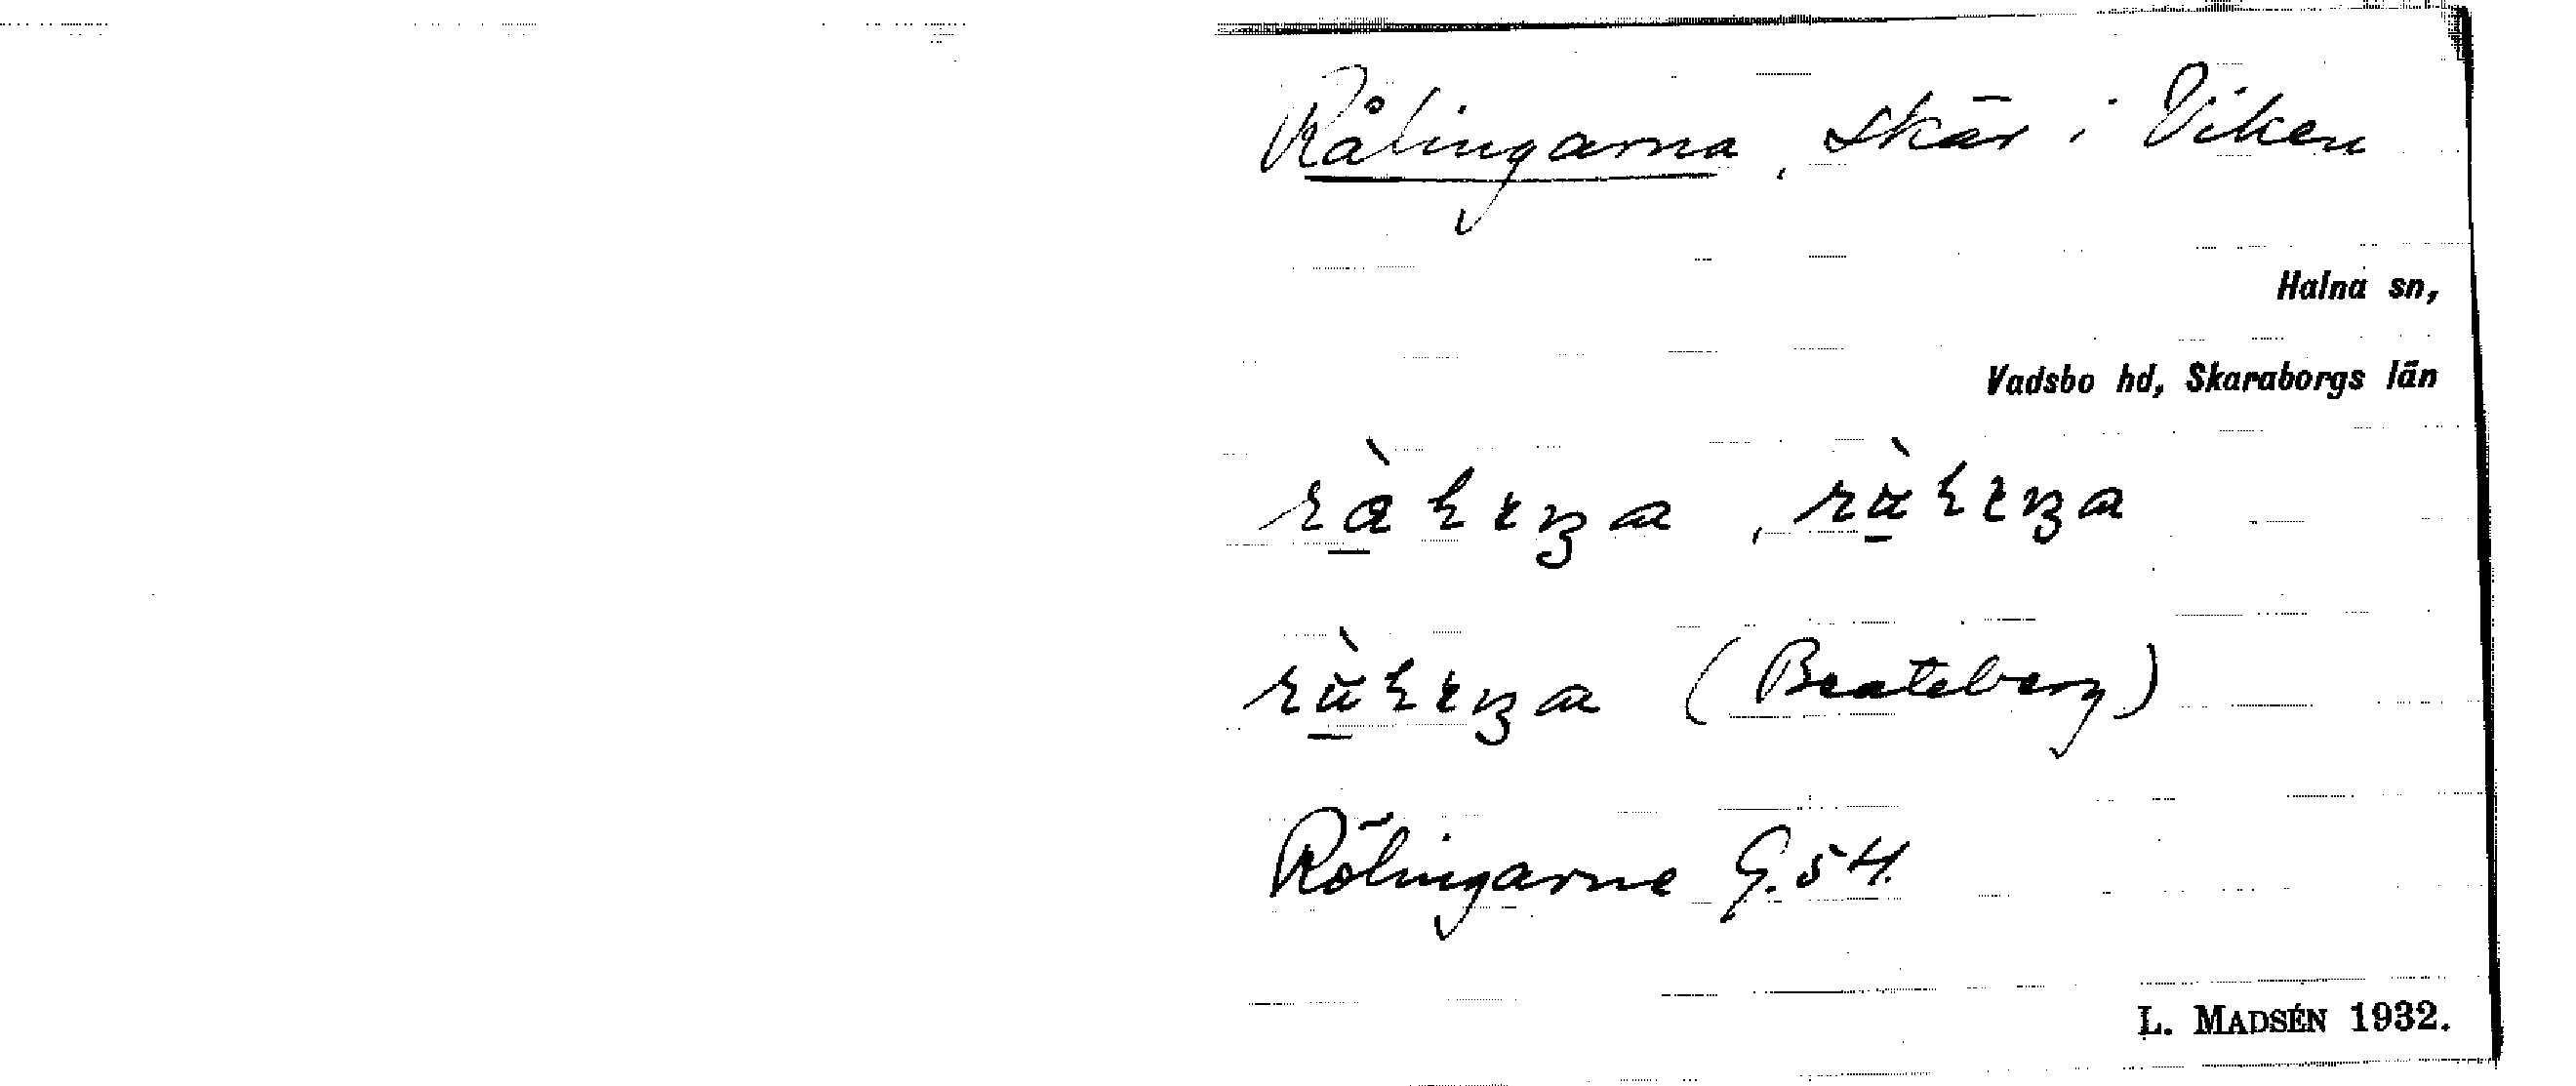 Rålingarna, skär i Viken
Halna sn,
Vadsbo hd, Skaraborgs län
(Beateberg)
Rölingarne G. 54.
L. MADSÉN 1932.